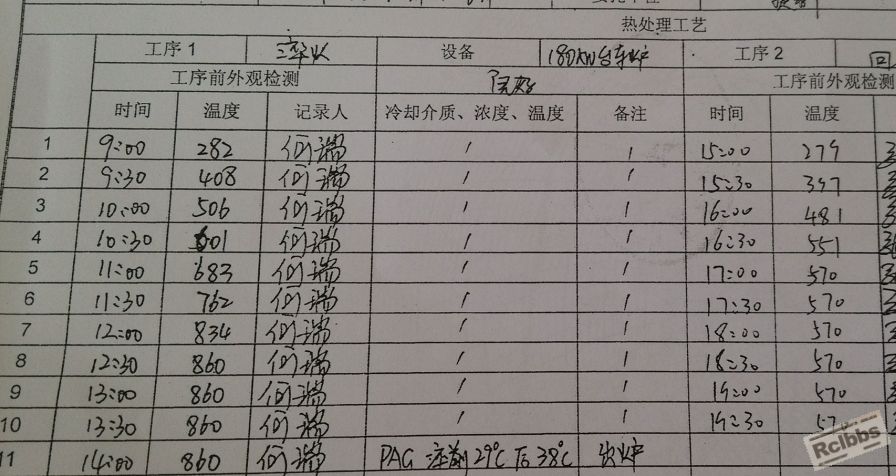 热处理工艺
工序1 淬火 设备 180KW台车炉 工序2 回
工序前外观检测 良好 工序前外观检测
时间 温度 记录人 冷却介质、浓度、温度 备注 时间 温度
1 9:00 282 何瑞 / / 15:00 279
2 9:30 408 何瑞 / / 15:30 397
3 10:00 506 何瑞 / / 16:00 481
4 10:30 601 何瑞 / / 16:30 551
5 11:00 683 何瑞 / / 17:00 570
6 11:30 762 何瑞 / / 17:30 570
7 12:00 834 何瑞 / / 18:00 570
8 12:30 860 何瑞 / / 18:30 570
9 13:00 860 何瑞 / / 19:00 570
10 13:30 860 何瑞 / / 19:30 57
11 14:00 860 何瑞 PAG 淬前29℃ 后38℃ 出炉
Rclbbs